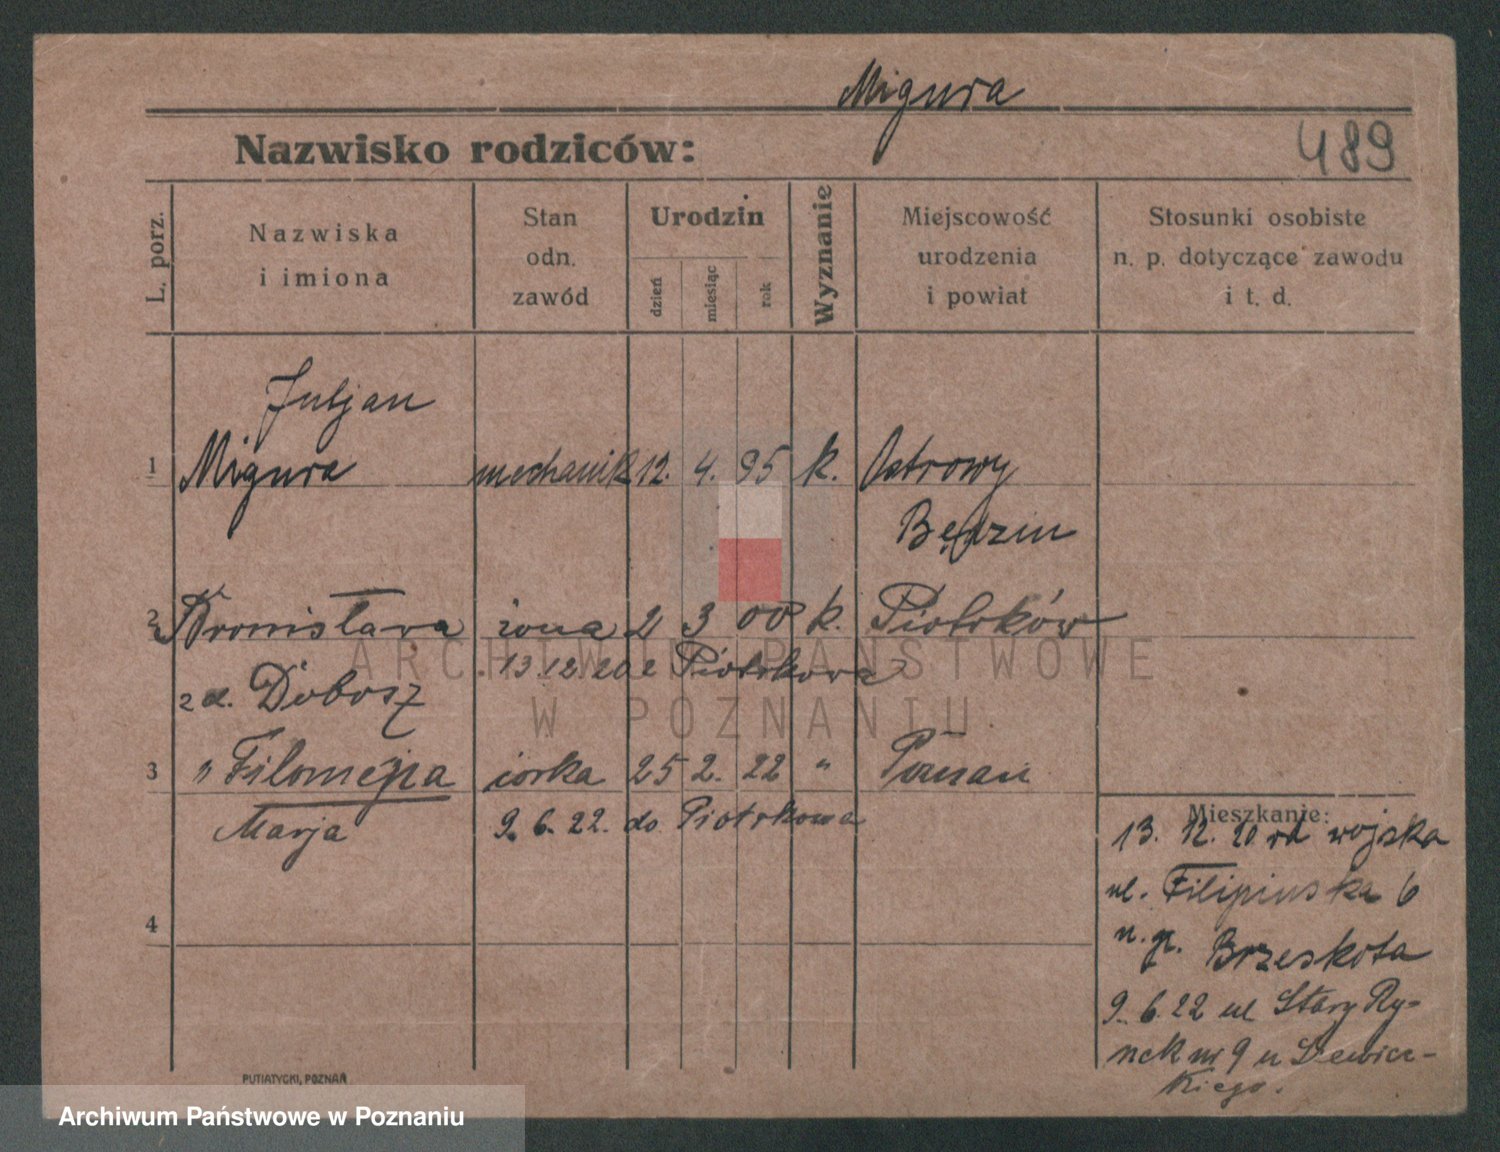 Migura
Nazwisko rodziców:
489
L. porz.
Nazwiska
i imiona
Stan
odn.
zawód
Urodzin
dzień
miesiąc
rok
Wyznanie
Miejscowość
urodzenia
i powiat
Stosunki osobiste
n. p. dotyczące zawodu
i t. d.
Juljan
1 Migura mechanik 12. 4. 95 k. Ostrowy
Będzin
2 Bronisława żona 2 3 00 k. Piotrków
13.12.20 z Piotrkowa
z d. Dobosz
3 " Filomena córka 25 2. 22 " Poznań
Marja 9. 6. 22. do Piotrkowa
4
Mieszkanie:
13. 12. 20 od wojska
ul. Filipińska 6
n. p. Brzeskota
9. 6. 22 ul Stary Ry-
nek nr 9 u
kiego.
PUTIATYCKI, POZNAŃ
ARCHIWUM PAŃSTWOWE
W POZNANIU
Archiwum Państwowe w Poznaniu